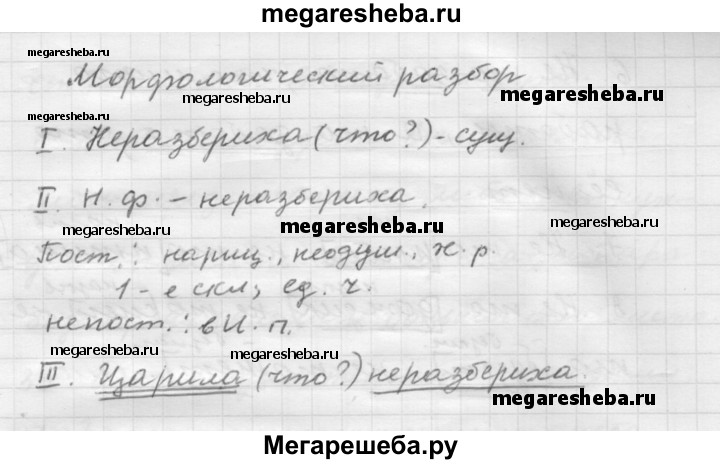 megaresheba.ru
megaresheba.ru
Морфологический разбор
megaresheba.ru
megaresheba.ru
megaresheba.ru
I. Неразбериха (что?) - сущ.
II. Н. ф. - неразбериха.
megaresheba.ru
megaresheba.ru
megaresheba.ru
Пост.: нариц., неодуш., ж. р.
1 - е скл., ед. ч.
непост.: в И. п.
megaresheba.ru
megaresheba.ru
III. Царила (что?) неразбериха.
megaresheba.ru
Мегарешеба.ру